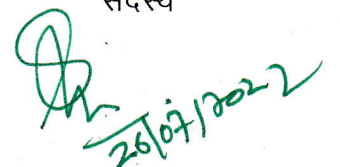 सदस्य
26/07/2022